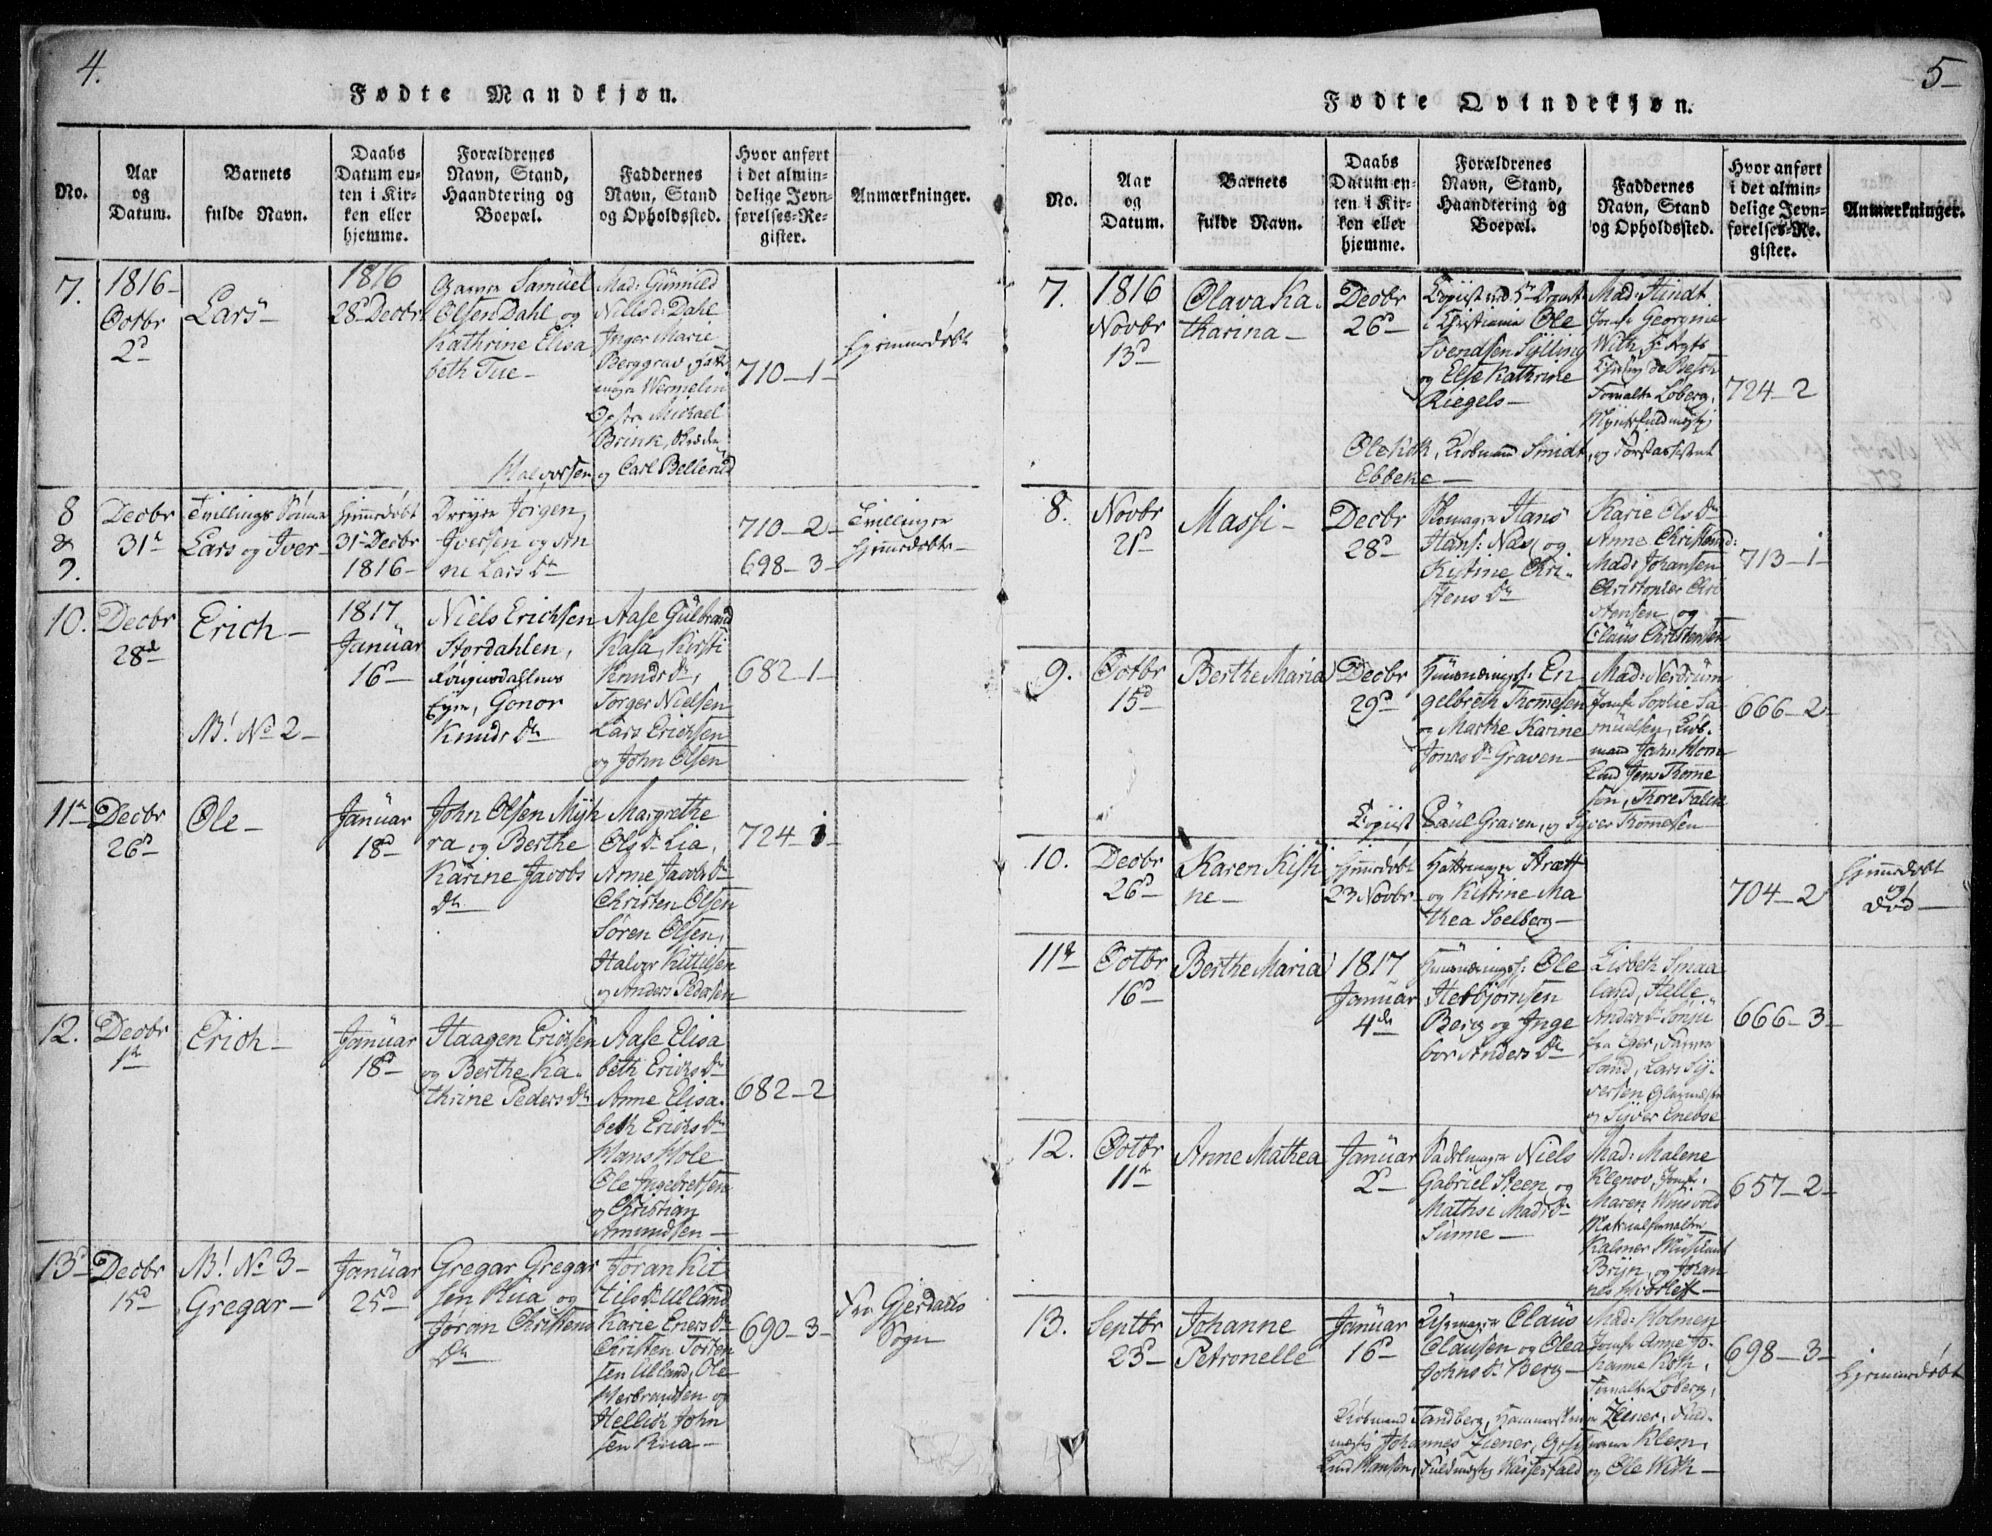 4.
Fødte Mandkjøn.
No.
Aar
og
Datum.
Barnets
fulde Navn.
Daabs
Datum en-
ten i Kir-
ken eller
hjemme.
Forældrenes
Navn, Stand,
Haandtering og
Boepæl.
Faddernes
Navn, Stand
og Opholdssted.
Hvor anført
i det almin-
delige Jevn-
førelses-Re-
gister.
Anmærkninger.
7.
1816-
Octbr
2d
Lars-
1816
28d Decbr
Samüel
Olsen Dahl og
Kathrine Elisa
beth Tue-
Mad: Günnild
Nilsd: Dahl
Inger Marie
Berggrav,
Wermelin
Michael
Brink,
Halvorsen og Carl Bellerud
710-1-
Hjemmedøbt
8
&
9.
Decbr
31te
Tvillings Sønner
Lars og Iver-
Hjemmedøbt
31te Decbr
1816-
Dreyer Jørgen
Iversen og An
ne Lars Dtr
710-2-
698-3-
Tvillinger
Hjemmedøbte-
10.
Decbr
28de
Erich-
NB! No 2-
1817
Januar
16d
Niels Erichsen
Stordahlen,
Gonor
Knuds Dtr
Aase Gulbrand
Kasa, Kirsti
Knuds Dtr,
Torger Nielsen
Lars Erichsen
og John Olsen
682-1
11te
Decbr
26d
Ole-
Januar
18d
John Olsen Myh
ra og Berthe
Karine Jacobs
Dtr
Margrethe
Ols Dtr Lia,
Anne Jacobs Dtr
Christen Olsen
Søren Olsen,
Halvor Kittilsen
og Anders Pedersen
724-1-
12.
Decbr
1te
Erich-
Januar
18d
Haagen Erichsen
og Berthe Ka-
thrine Peders Dtr
Aase Elisa
beth Erichs Dtr
Anne Elisa-
beth Erichs Dtr
Hans Hole
Ole Ingebretsen
og Christian
Amundsen-
682-2
13d
Decbr
15d
NB! No 3-
Gregar-
Januar
25d
Gregar Gregar
sen Rua og
Jøran Christens
Dtr
Jøran Kit
tils Dtr Ulland
Karie Eners Dtr
Christen Torsen
sen Ulland, Ole
Herbrandsen og
Hellich John
sen Rua-
690-3-
Fra Gjerdals
Sogn
5-
Fødte Qvindekjøn.
No.
Aar
og
Datum.
Barnets
fulde Navn.
Daabs
Datum en-
ten i Kir-
ken eller
hjemme.
Forældrenes
Navn, Stand,
Haandtering og
Boepæl.
Faddernes
Navn, Stand
og Opholdssted.
Hvor anført
i det almin-
delige Jevn-
førelses-Re-
gister.
Anmærkninger.
7.
1816
Novbr
13d
Olava Ka-
tharina-
Decbr
26d
i Christiania Ole
Svendsen Sylling
og Else Kathrine
Riegels-
Mad: Hindt
Jomfr Georgine
With,
Forvalter Loberg,
Ole Kok, Kiøbmand Smidt, og Forstassistent
Ebbeke-
724-2
8.
Novbr
21d
Massi-
Decbr
28d
Skomager Hans
Hans: Næs og
Kistine Chri-
stens Dtr
Karie Ols Dtr
Anne Christensd:
Mad: Johansen
Christopher Chri
stensen og
Claus Christensen
713-1-
9.
Octbr
15d
Berthe Maria
Decbr
29d
En
gelbreth Thomesen
og Marthe Karine
Jonas Dtr Graven-
Mad: Nerdrum
Jomfr Sophie Sa
muelsen, Kiøb-
mand John Mon
Jens Thome
sen, Thore Falck
Copiist Paul Graven, og Syver Thomesen
666-2-
10.
Decbr
26d
Karen Kisti
ne-
Hjemmedøbt
23 Novbr
Hattemager Stræt
og Kistine Ma
thea Soelberg-
704-2
Hjemmedøbt
og
død-
11te
Octbr
16d
Berthe Maria
1817
Januar
4de
Ole
Hebbjørnsen
Berg og Inge
bor Anders Dtr
Lisbeth Smaa
land, Helle
Anders Dtr
fra Eger,
Sand, Lars Sy-
versen Glarmester
og Syver Eneboe
666-3-
12.
Octbr
11te
Anne Mathea
Januar
2d
Sadelmager Niels
Gabriel Steen og
Mathie Mads Dtr
Sunne-
Mad: Malene
Klenov, Jomfr:
Maren
Materialforvalter
Kalsner Musikant
Bryn, og Johan
nes
657-2-
13.
Septbr
23d
Johanne
Petronelle
Januar
16d
Claus
Clausen og Olea
Johns Dtr Berg-
Mad: Holmen
Jomfr Anne Jo-
hanne Koth,
Forvalter Loberg,
Kiøbmand Sandberg, Ziener, Fuld-
mægtig Johannes Ziener, Klem,
Hansen, Fuldmægtig Wasserfald og Ole With-
698-3-
Hjemmedøbt